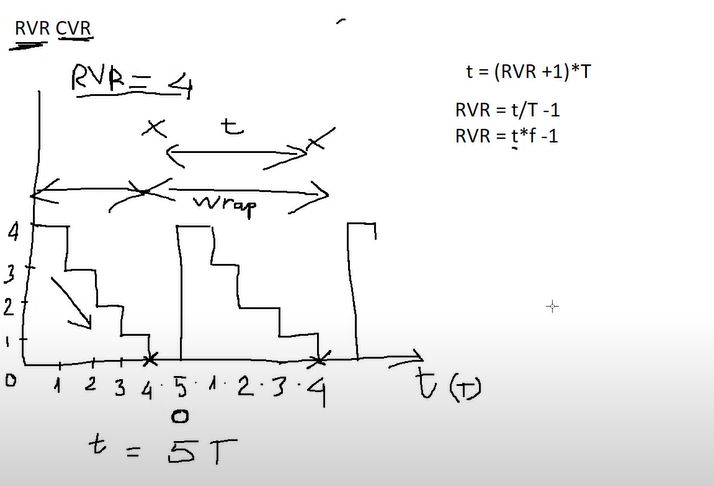 RVR CVR
RVR = 4
t = (RVR +1)*T
RVR = t/T -1
RVR = t*f -1
x t x
wrap
4
3
2
1
0 1 2 3 4 . 5 . 1 . 2 . 3 . 4 t (T)
0
t = 5T